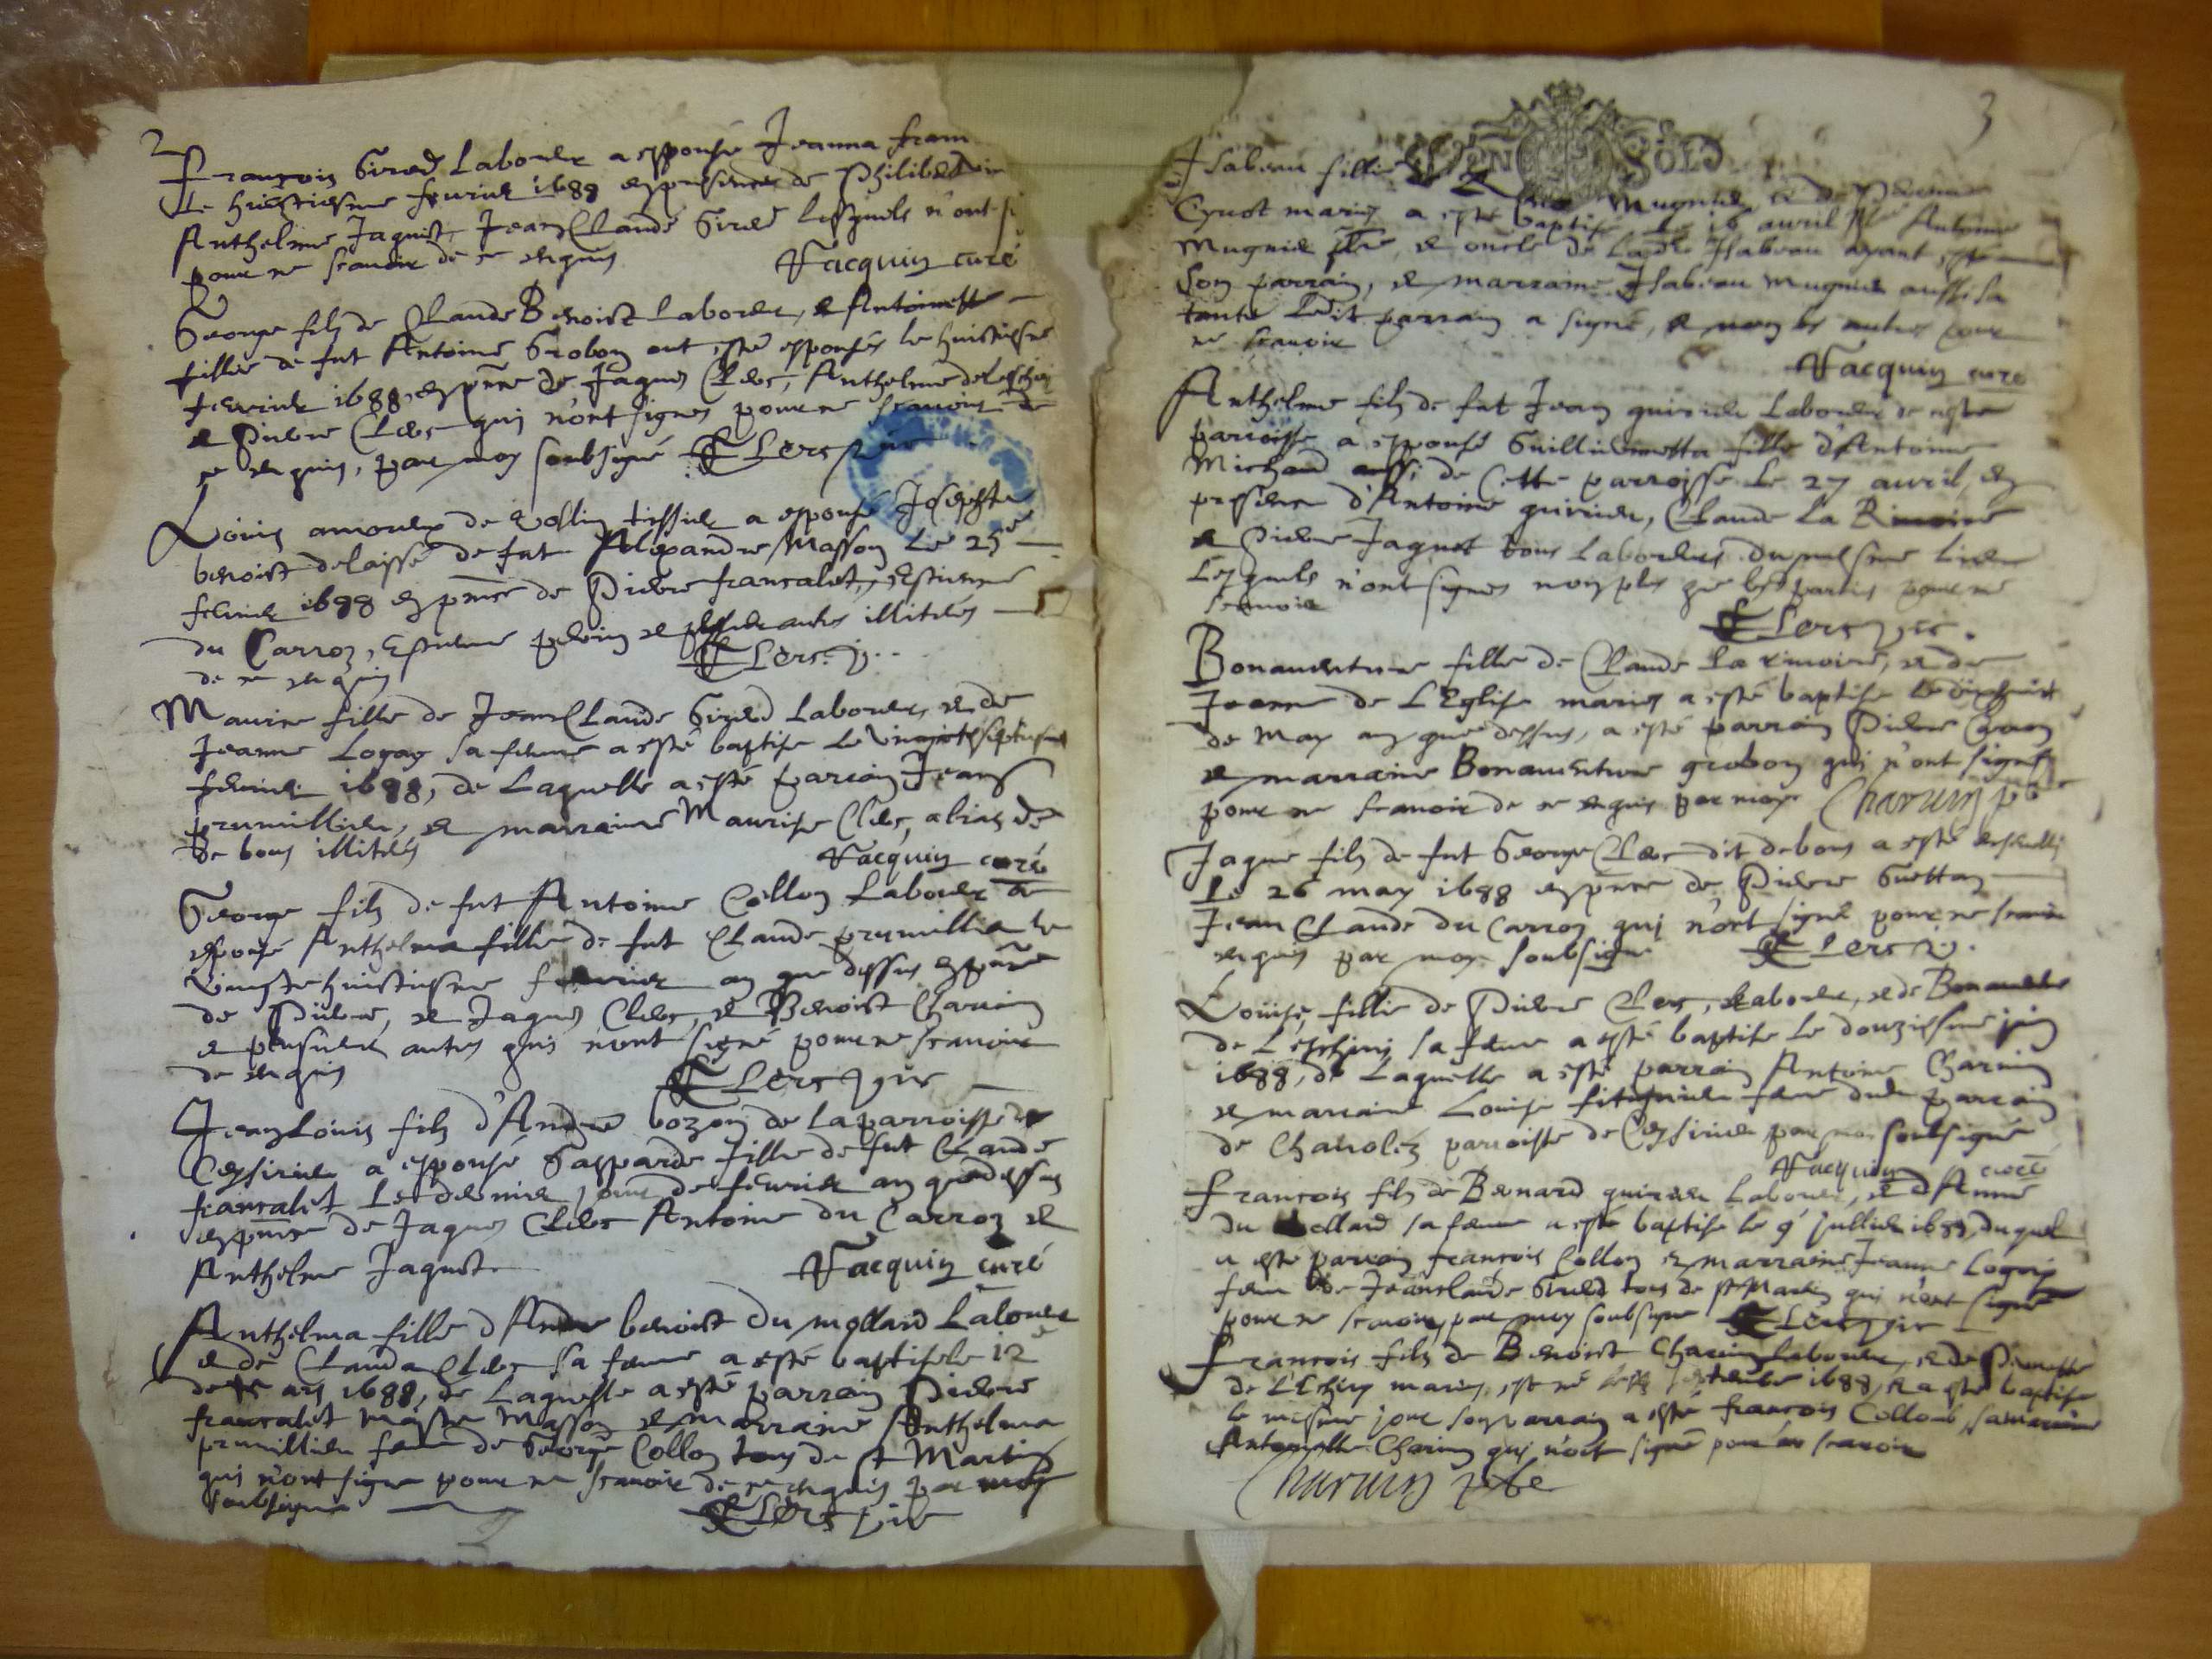 2
François Girerd Laboureur a espousé Jeanna fran
Le huictiesme feurier 1688 en presence de Philibert
Anthelme Jaquet, Jean Claude Girerd lesquels n'ont
pour ne scauoir de ce requis Vacquin curé
George filz de Claude Benoist Laboureur, & Antoinette
fillie de fut Antoine Grobon ont esté espousés le huictiesme
feurier 1688, en pnce de Jaques Clerc, Anthelme
& Pierre Clerc qui n'ont signes pour ne scauoir de
ce requis, par moy soubsigné Clerc
Louis amoureux de Collin tissier a espousé Josephte
benoist delaissé de fut Alexandre Masson Le 25e
feurier 1688 en pnce de Pierre francalet, Estienne
du Carroz, Estienne & plusieurs autres illiterés
de ce requis Clerc
Maurise fille de Jean Claude Girerd Laboureur, & de
Jeanne Logoz sa femme a esté baptisé le vingtseptiesme
feurier 1688, de Laquelle a esté parrain Jean
prumillieu, & marraine Maurise Clerc, alias de
de bons illiterés Vacquin curé
George filz de fut Antoine Collon Laboureur a
espousé Anthelma fillie de fut Claude prumillieu le
vingthuictiesme feurier an que dessus en pnce
de Pierre, & Jaques Clerc, & Benoist Charuin
& plusieurs autres qui n'ont signé pour ne scauoir
de requis Clerc
Jean Louis filz d'André bozon de la parroisse de
Ceysirieu a espousé Gasparde fillie de fut Claude
francalet Le dernier jour de feurier an que dessus
en pnce de Jaques Clerc Antoine du Carroz &
Anthelme Jaquet Vacquin curé
Anthelma fille d'Andre benoist du mollard Laboureur
& de Clauda Clerc sa femme a esté baptisé le 12
de 1688, de Laquelle a esté parrain Pierre
francalet Masson & marraine Anthelma
prumillieu femme de George Collon tous de St Martin
qui n'ont signe pour ne scauoir de ce requis par moy
soubsigne Clerc
3
Isabeau fillie de Mugnier, & de
Cynot mariés a esté baptisé le 16 auril Antoine
Mugnier & oncle de Ladte Isabeau ayant esté
son parrain, & marraine Isabeau Mugnier aussi sa
tante Ledit parrain a signé, & non les autres pour
ne scauoir
Vacquin curé
Anthelme filz de fut Jean quirieu Laboureur de cette
parroisse a espousé Guillielmetta fille d'Antoine
Michaud aussi de Cette parroisse Le 27 auril, en
presence d'Antoine quirieu, Claude La
& Pierre Jaquet tous Laboureurs du mesme lieu
Lesquels n'ont signes non plus que les parties pour ne
scauoir
Clerc
Bonauenture fille de Claude La & de
Jeanne de L'Eglise mariés a esté baptisé Le dixhuict
de May an que dessus, a esté parrain Pierre
& marraine Bonauenture grobon qui n'ont signé
pour ne scauoir de ce requis par moy Charuin pbre
Jaque filz de fut George Clerc dit debons a esté
Le 26 may 1688 en pnce de Pierre Guettaz
Jean Claude du Carroz qui n'ont signé pour ne scauoir
requis par moy soubsigne Clerc
Louise, fillie de Pierre Clerc, Laboureur, & de Bonauenture
de Leschiery sa femme a esté baptisé le douziesme juin
1688, de Laquelle a esté parrain Antoine Charuin
& marraine Louise femme dudit parrain
de Chauolez parroisse de Ceysirieu par moy soubsigné
Vacquin curé
François filz de Benard quirieu Laboureur, & d'Anne
du mollard sa femme a esté baptisé le 9e jullier 1688, duquel
a esté parrain françois Collon & marraine Jeanne Logoz
femme de Jeanclaude Girerd tous de St Martin qui n'ont signé
pour ne scauoir, par moy soubsigne Clerc
François filz de Benoist Charuin Laboureur, & de
de L'Eschiery mariés, est né septembre 1688, & a esté baptisé
le mesme jour son parrain a esté françois Collomb, sa marraine
Antoinette Charuin qui n'ont signé pour ne scauoir
Charuin pbre